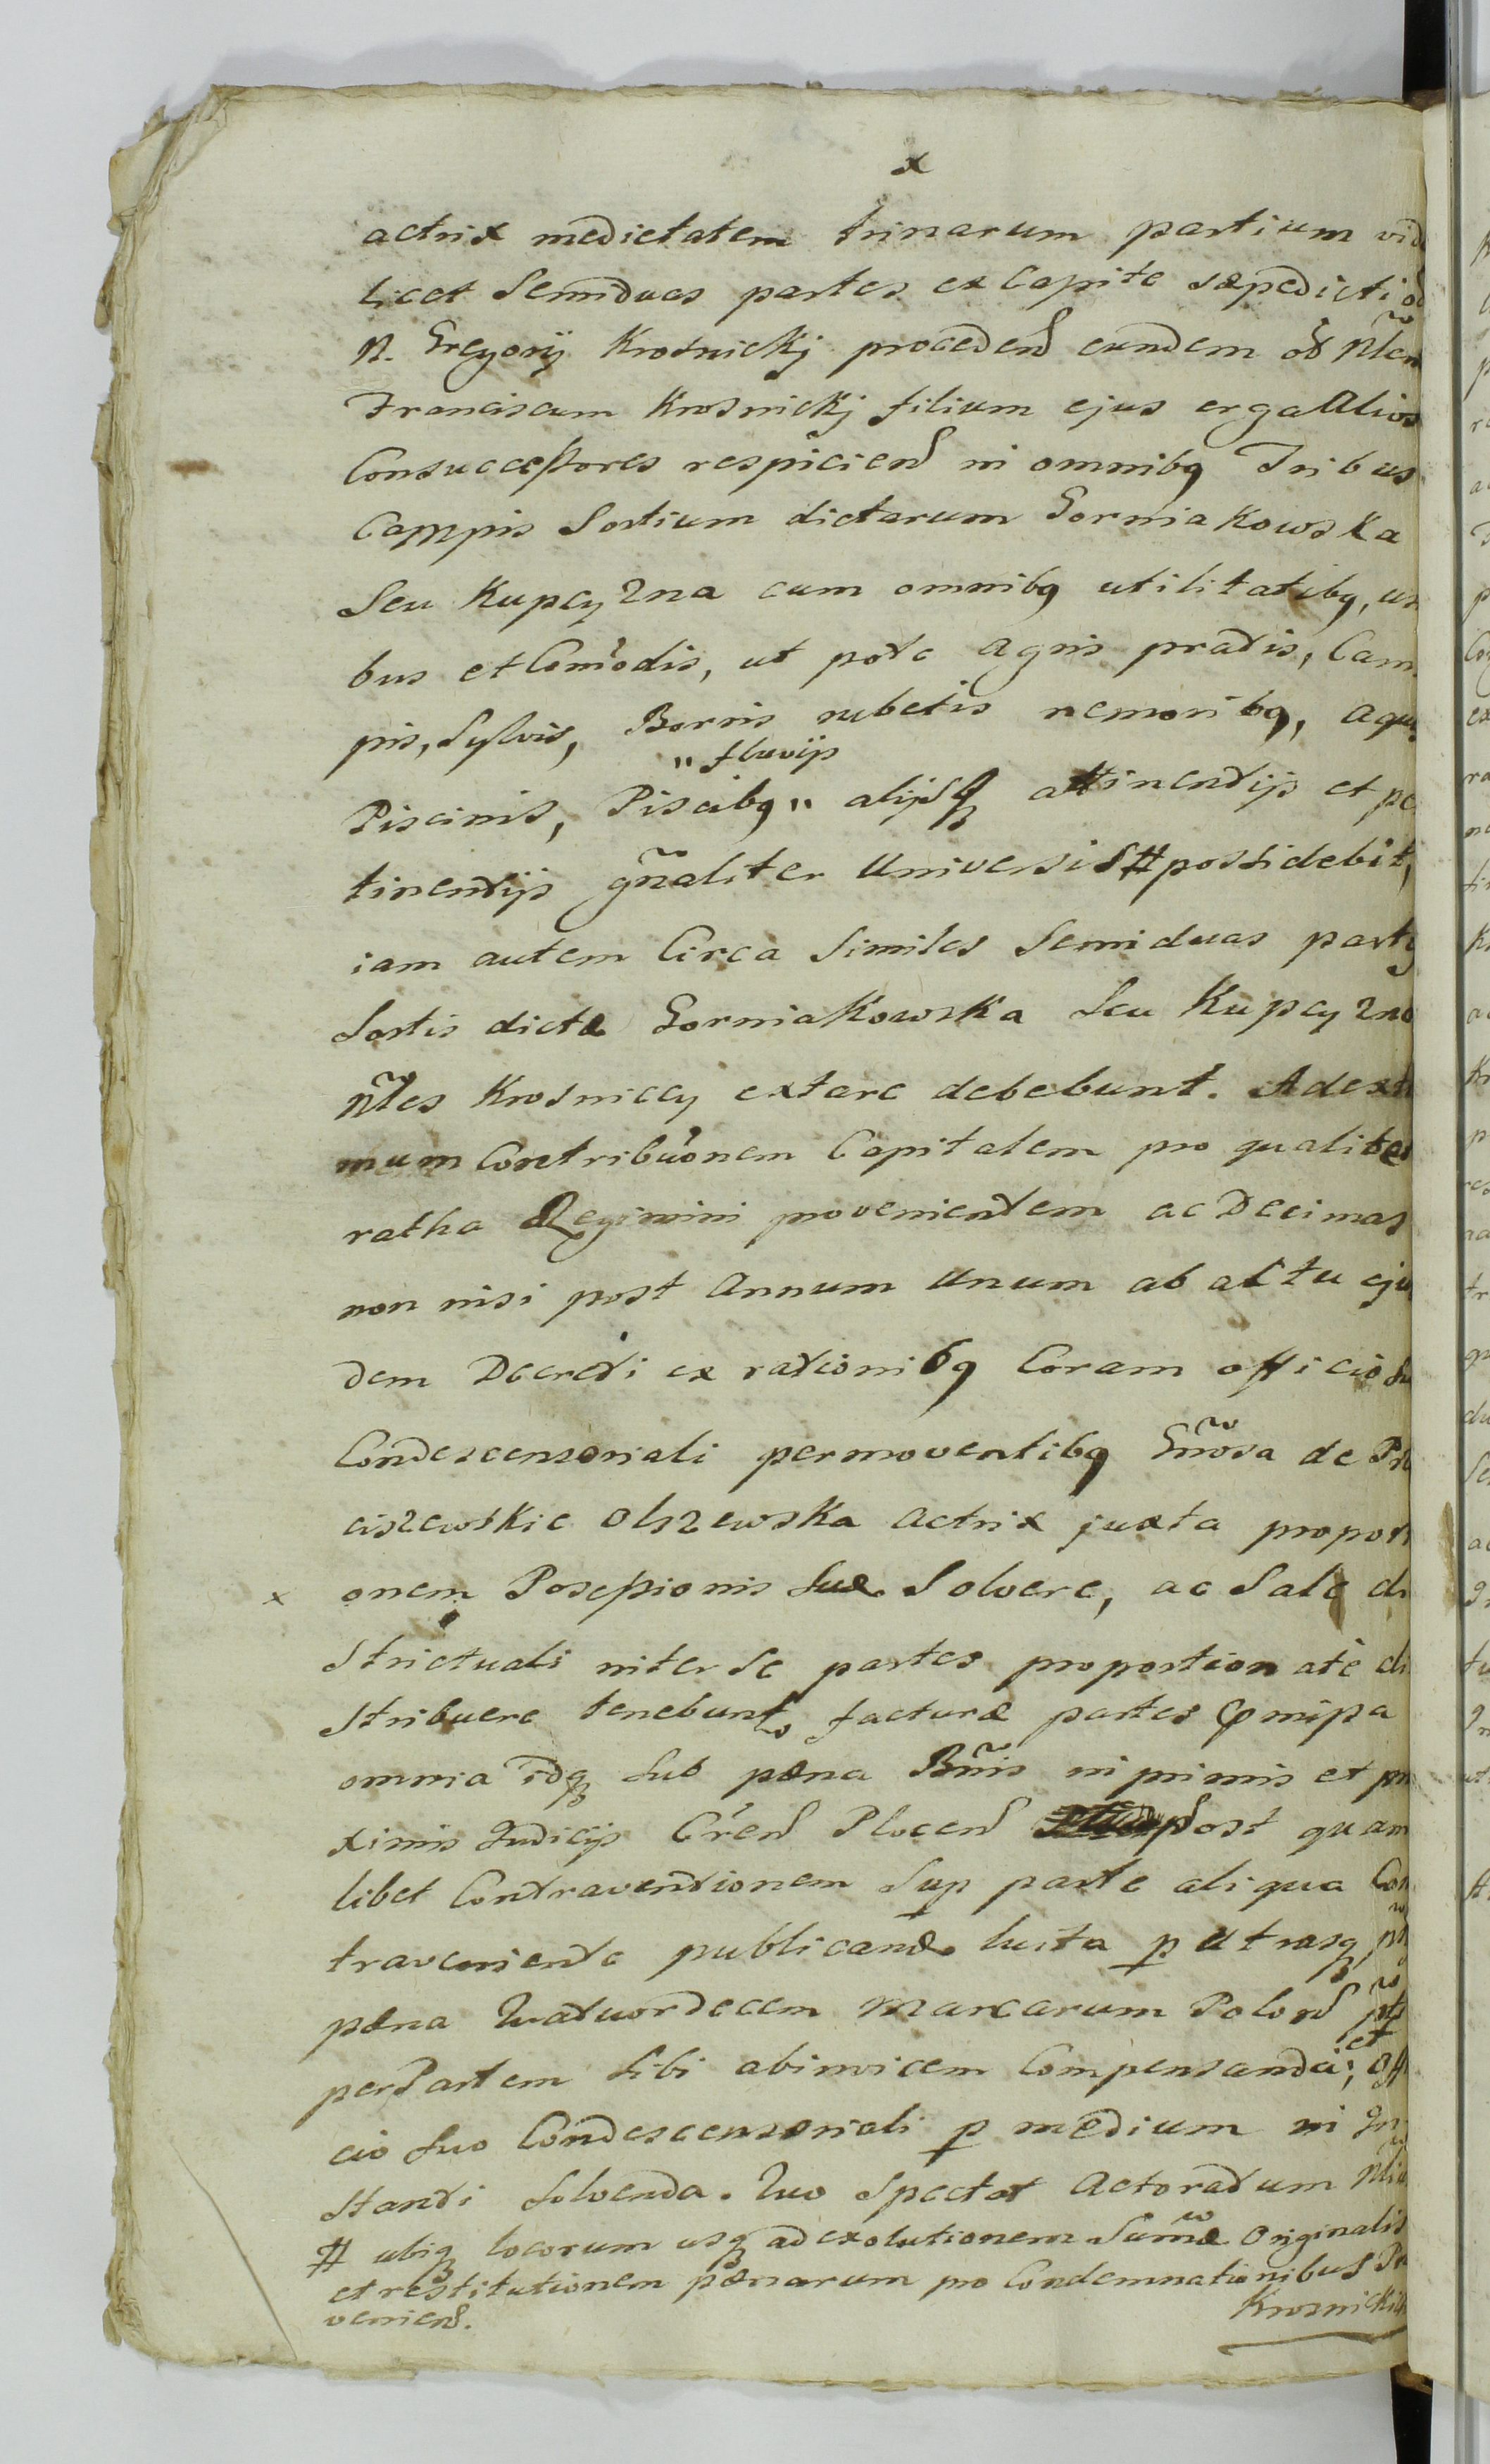 x
actrix medietatem trinarum partium vid
licet Semiduas partes ex Capite sæpedicti
N. Gregorij Krosnickj procedend eundem
Franciscum Krosnickj filium ejus erga Alios
Consuccessores respiciend in omnibq Tribus
Campis Sortium dictarum Gorniakowska
Seu Kupcyzna cum omnibq utilitatibq, us
bus et Comodis, ut pote agris pratis, Cam
pis, Sylvis, Borris rubetis nemoribq, aqu
" fluvijs
Piscinis, Piscibq " alijsq attinentijs et pe
tinentijs gnaliter Universis # possidebit,
iam autem Circa Similes Semiduas partes
Sortis dictæ Gorniakowska Seu Kupcyzna
Nles Krosniccy extare debebunt. Ad ext
mum Contribuonem Capitalem pro qualitat
ratha Regimini provenientem ac Decimas
non nisi post Annum Unum ab actu eju
dem Decreti ex rationibq Coram officio Su
Condescensoriali permoventibq Gnrosa de Pr
ciszewskie Olszewska Actrix juxta proporti
x onem Possessionis Suæ Solvere, ac Sale di
strictuali inter Se partes proportionatè di
stribuere tenebunt facturæ partes præmissa
omnia idq Sub pæna Bnnis in primis et pro
ximis Judicijs Crens Plocens post quam
libet Contraventionem Sup parte aliqua Con
traveniente publicandæ luita p utrasq
pæna Quatuordecem Marcarum Polon
per Partem Sibi abinvicem Compensanda; et Offi
cio Suo Condescensoriali p medium in In
stanti Solvenda. Quo Spectat Actoratum
# ubiq locorum usq ad exolutionem Sumæ Originalis
et restitutionem pænarum pro Condemnationibus Pr
veniend.
Krosnickich